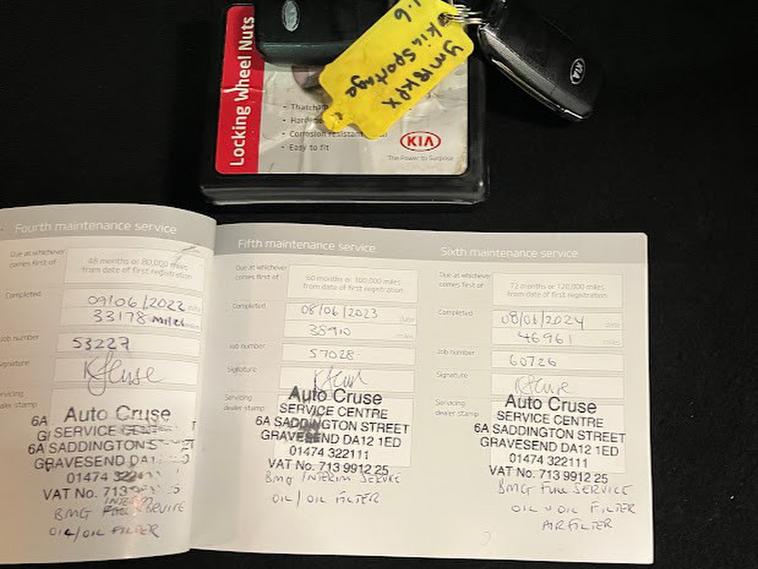 Locking Wheel Nuts
1.6
Kia Sportage
YM18
KIA
• Thatcham
• Corrosion resistant
• Easy to fit
KIA
The Power to Surprise
Fourth maintenance service
Due at whichever
comes first of
48 months or 80,000 miles
from date of first registration
Completed
09/06/2022
33178 miles
Job number
53227
Signature
Servicing
dealer stamp
Auto Cruse
SERVICE
6A SADDINGTON
GRAVESEND
01474
VAT No. 713
INTERIM
BMG SERVICE
OIL/OIL FILTER
Fifth maintenance service
Due at whichever
comes first of
60 months or 100,000 miles
from date of first registration
Completed
08/06/2023
date
38910
miles
Job number
57028
Signature
Servicing
dealer stamp
Auto Cruse
SERVICE CENTRE
6A SADDINGTON STREET
GRAVESEND DA12 1ED
01474 322111
VAT No. 713 9912 25
BMG INTERIM SERVICE
OIL/OIL FILTER
Sixth maintenance service
Due at whichever
comes first of
72 months or 120,000 miles
from date of first registration
Completed
08/06/2024
date
46961
miles
Job number
60726
Signature
Servicing
dealer stamp
Auto Cruse
SERVICE CENTRE
6A SADDINGTON STREET
GRAVESEND DA12 1ED
01474 322111
VAT No. 713 9912 25
BMG FULL SERVICE
OIL + OIL FILTER
AIR FILTER